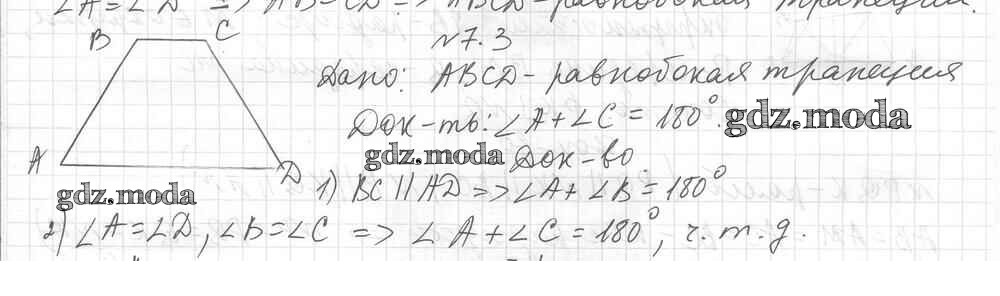 ∠A = ∠D => AB = CD => ABCD - равнобокая трапеция.
B
C
A
D
№7.3
Дано: ABCD - равнобокая трапеция
Док-ть: ∠A + ∠C = 180°.
gdz.moda
gdz.moda
Док-во
gdz.moda
1) BC || AD => ∠A + ∠B = 180°
2) ∠A = ∠D, ∠B = ∠C => ∠A + ∠C = 180°, ч.т.д.